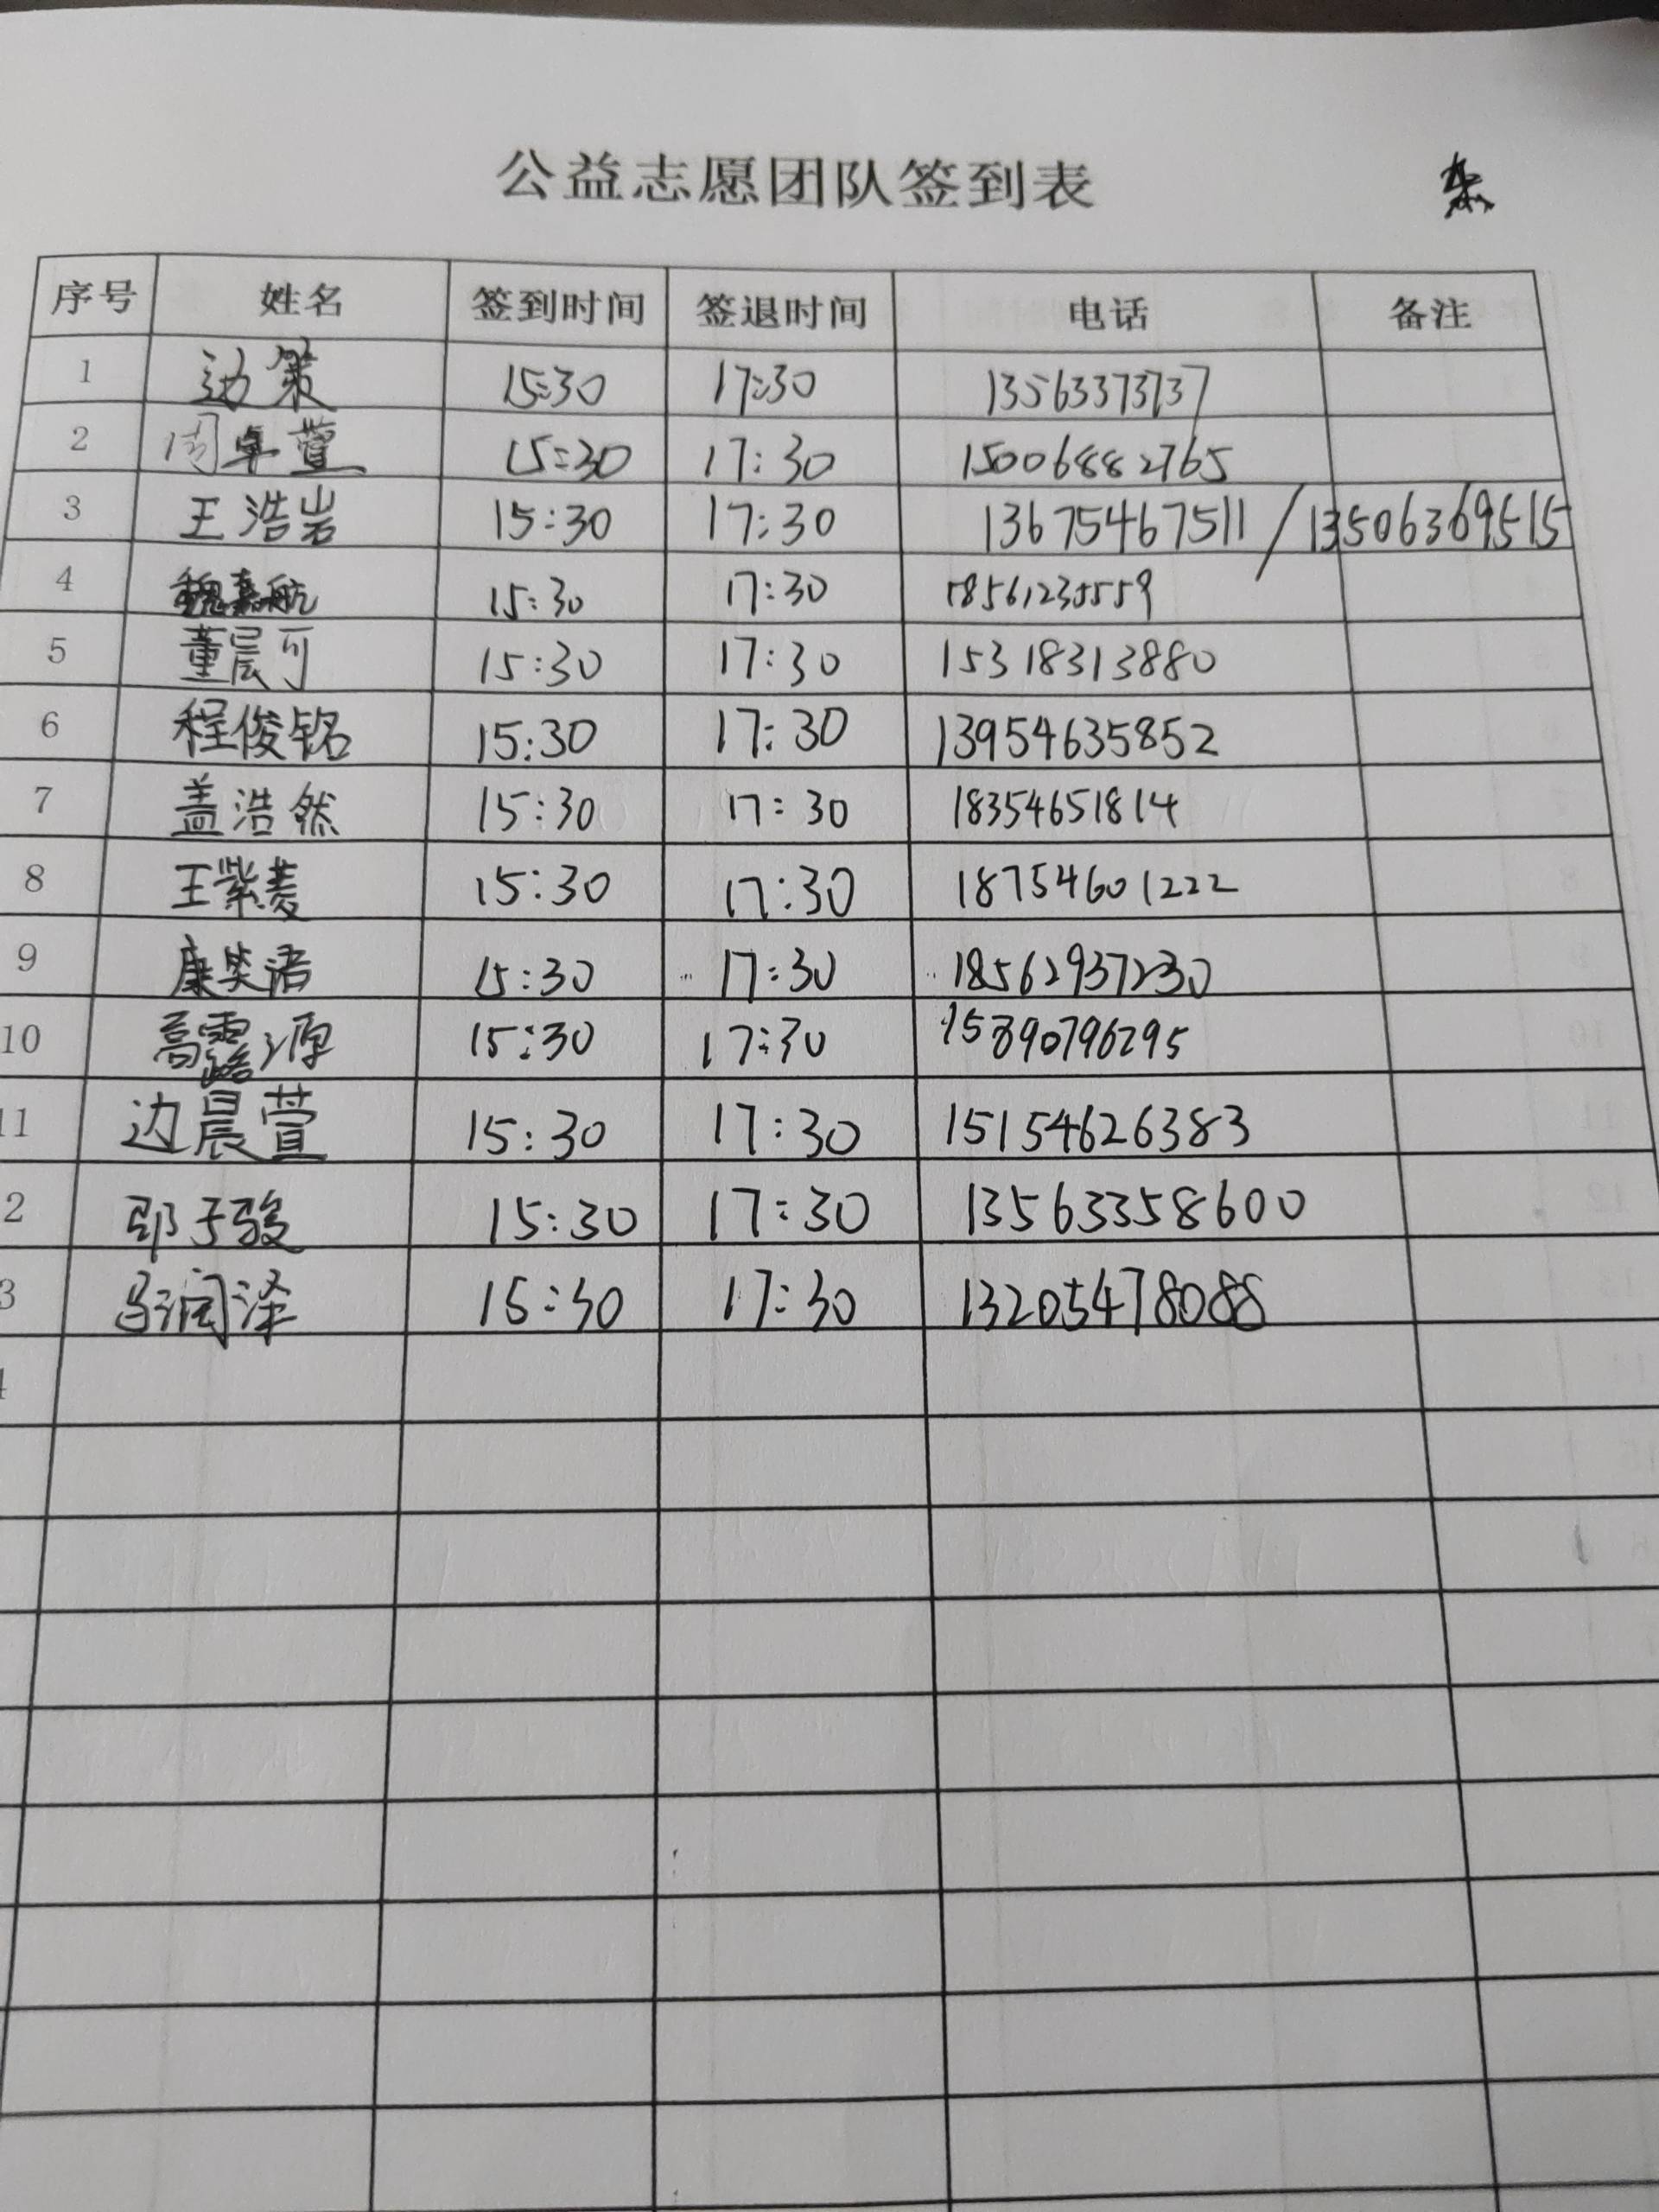 公益志愿团队签到表
序号 姓名 签到时间 签退时间 电话 备注
1 边策 15:30 17:30 13563373737
2 周卓萱 15:30 17:30 15006882765
3 王浩岩 15:30 17:30 13675467511 / 13506369515
4 魏嘉航 15:30 17:30 18561235559
5 董晨可 15:30 17:30 15318313880
6 程俊铭 15:30 17:30 13954635852
7 盖浩然 15:30 17:30 18354651814
8 王紫菱 15:30 17:30 18754601222
9 康笑语 15:30 17:30 18562937230
10 高露源 15:30 17:30
11 边晨萱 15:30 17:30 15154626383
2 子骏 15:30 17:30 13563358600
3 马润泽 15:30 17:30 13205478088